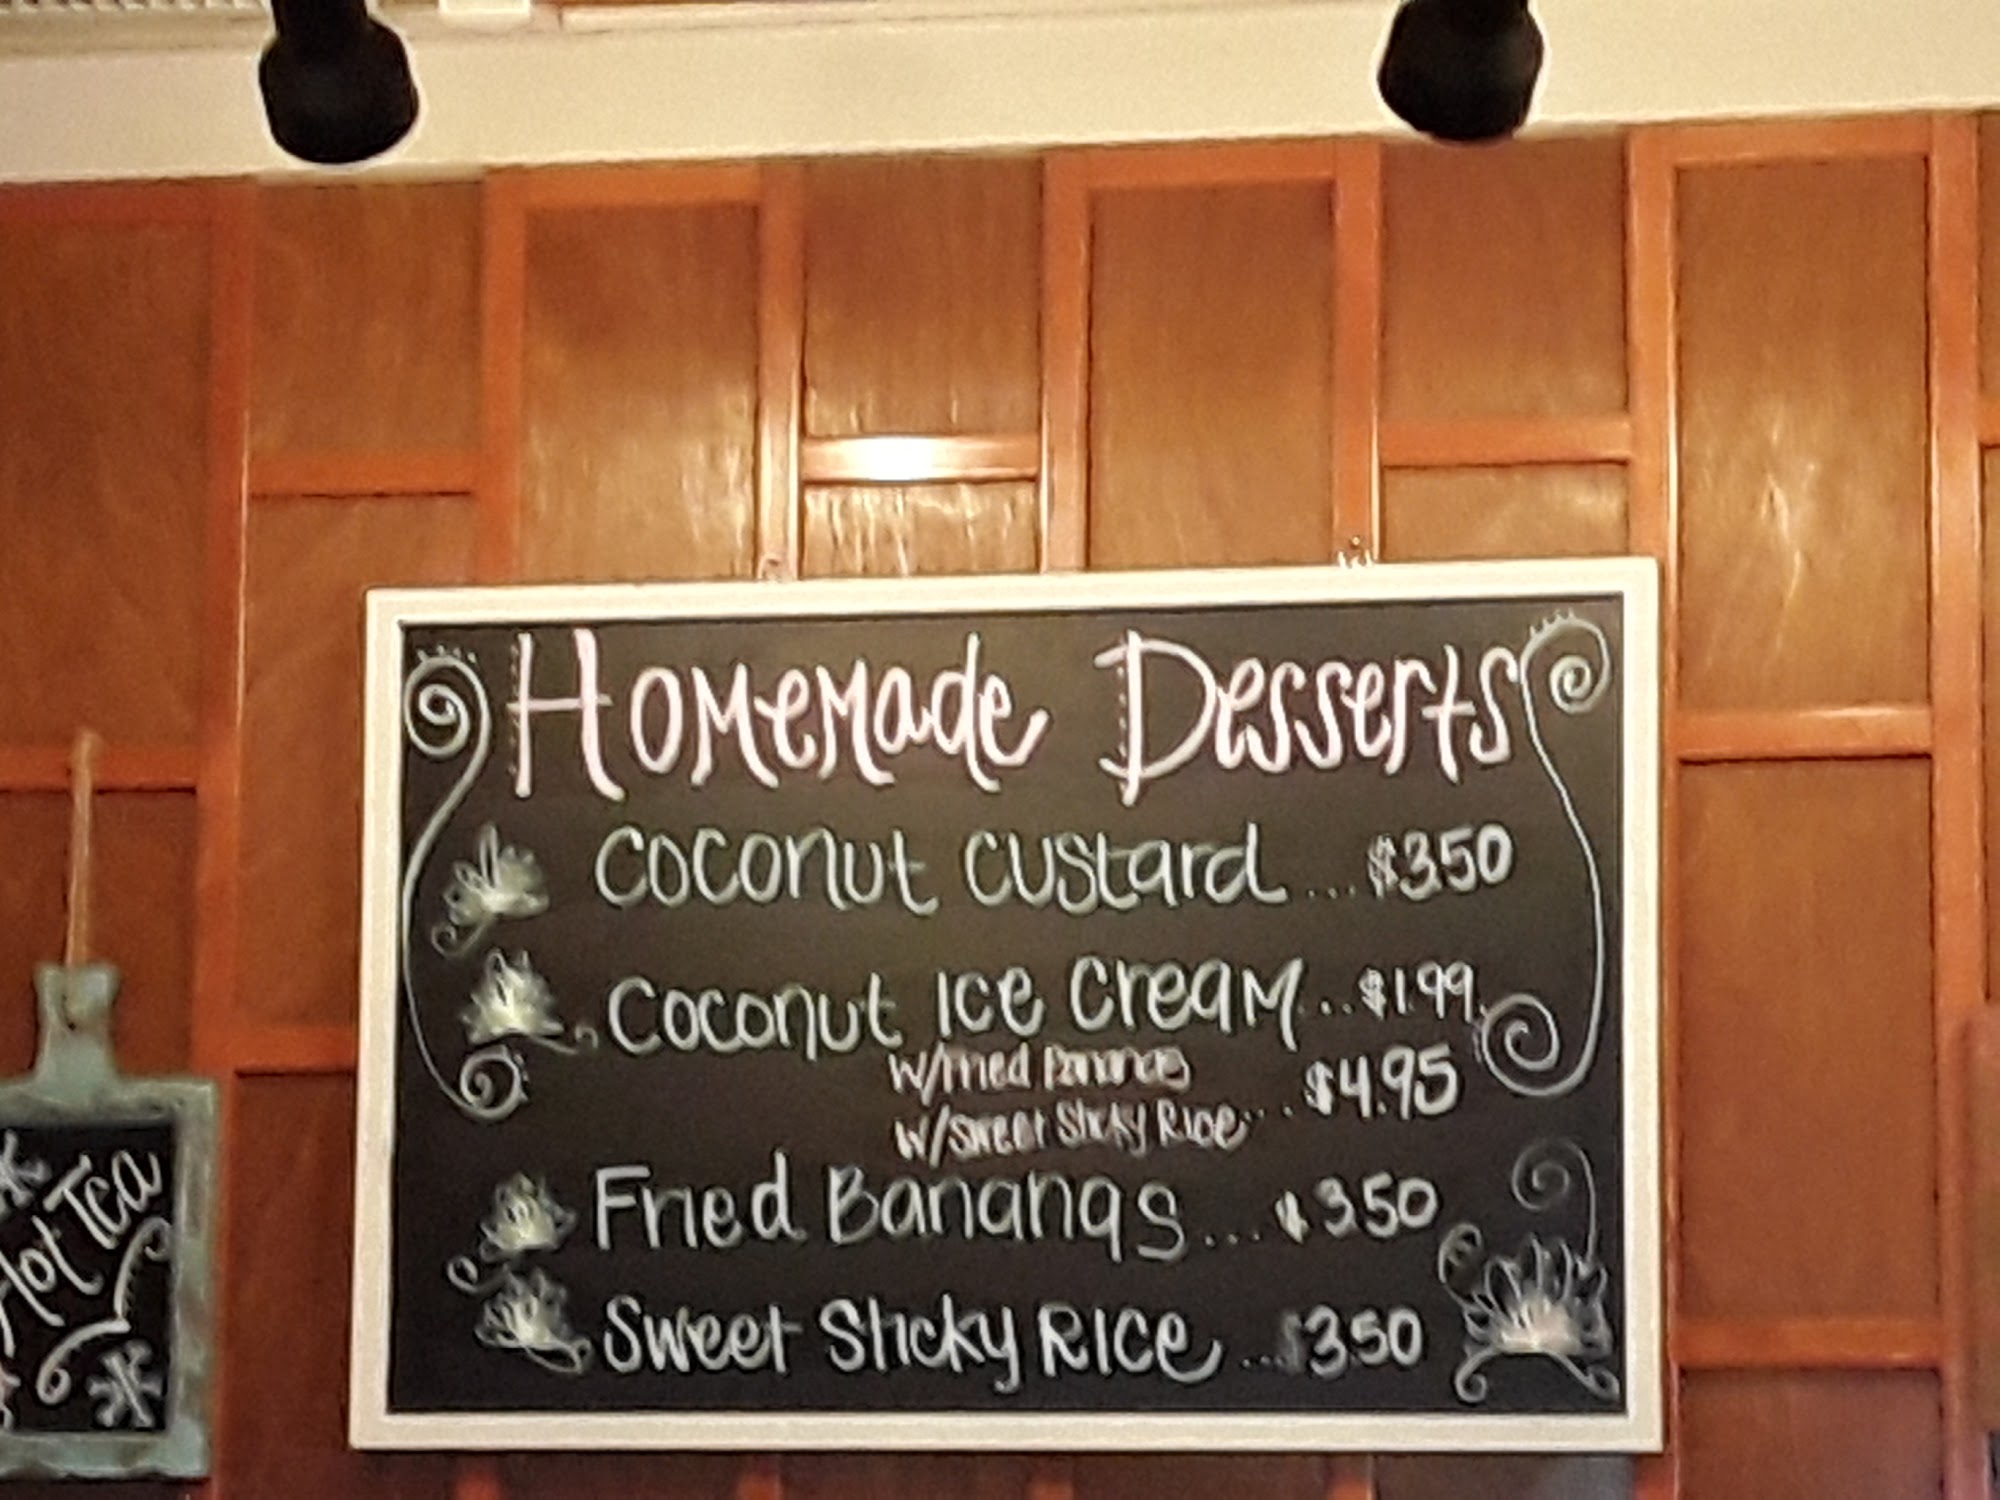 Homemade Desserts
Coconut Custard ... $3.50
Coconut Ice Cream ... $1.99
w/Fried Bananas
w/Sweet Sticky Rice ... $4.95
Fried Bananas ... $3.50
Sweet Sticky Rice ... $3.50
Hot Tea